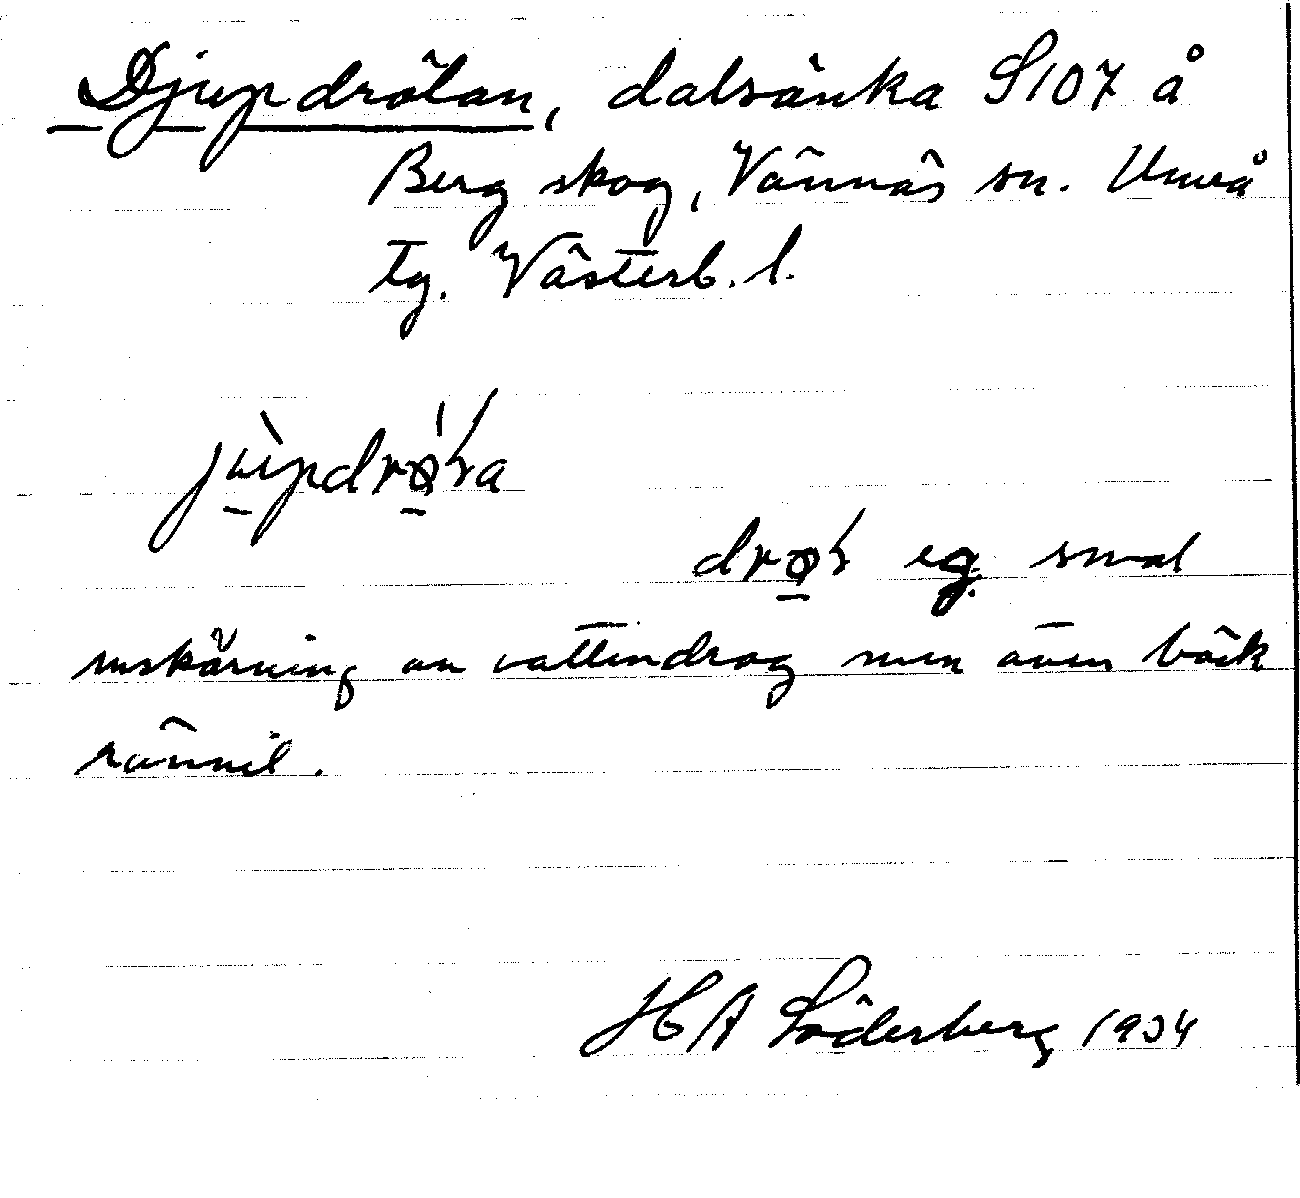 Djupdrölan, dalsänka S107 å
Berg skog, Vännäs sn. Umeå
tg. Västerb. l.
eg. smal
inskärning av vattendrag men även bäck
rännil.
H A Söderberg 1934